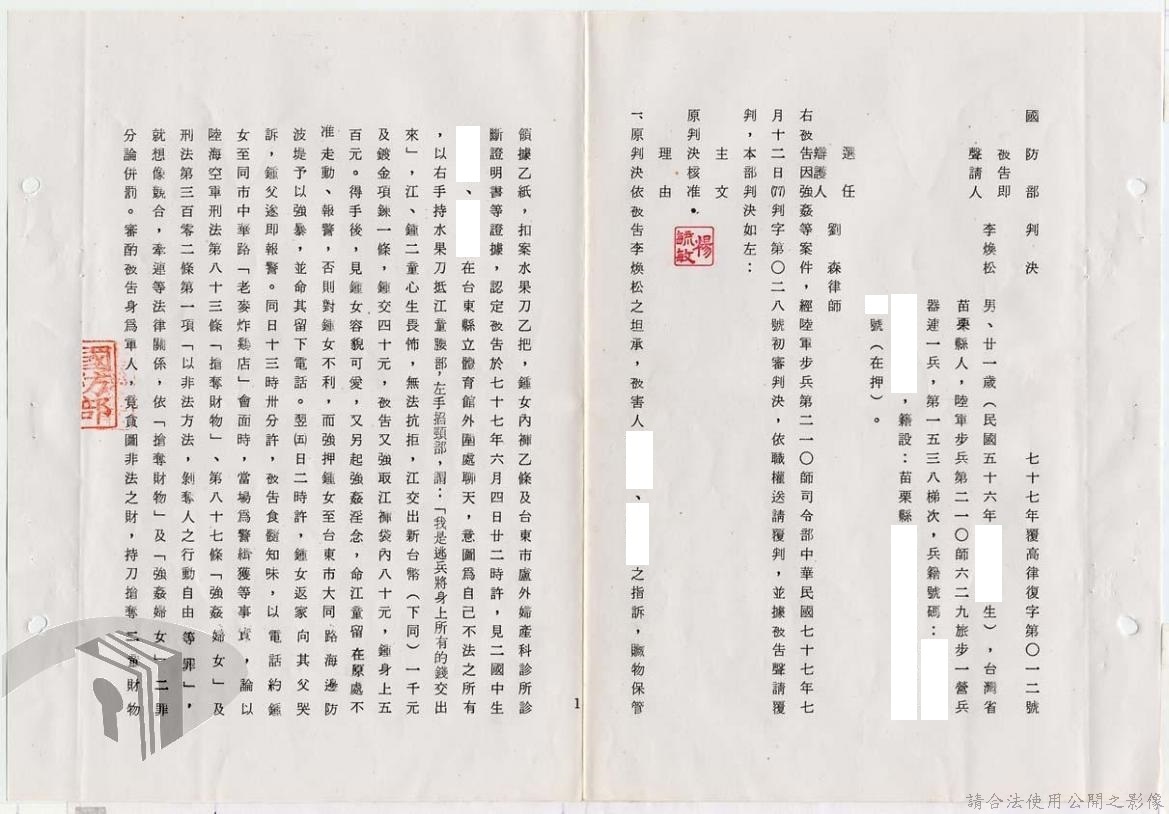 國防部判決
七十七年覆高律復字第〇一二號
被告即
聲請人
李煥松
男、廿一歲（民國五十六年
生），台灣省
苗栗縣人，陸軍步兵第二一〇師六二九旅步一營兵
器連一兵，第一五三八梯次，兵籍號碼：
，籍設：苗栗縣
號（在押）。
選任
辯護人
劉森律師
右被告因強姦等案件，經陸軍步兵第二一〇師司令部中華民國七十七年七
月十二日(77)判字第〇二八號初審判決，依職權送請覆判，並據被告聲請覆
判，本部判決如左：
主文
原判決核准。
楊毓敏
理由
一、原判決依被告李煥松之坦承，被害人
、
之指訴，贓物保管
1
領據乙紙，扣案水果刀乙把，鍾女內褲乙條及台東市盧外婦產科診所診
斷證明書等證據，認定被告於七十七年六月四日廿二時許，見二國中生
、
在台東縣立體育館外圍處聊天，意圖為自己不法之所有
，以右手持水果刀抵江童腰部，左手掐頸部，謂：「我是逃兵將身上所有的錢交出
來」，江、鍾二童心生畏怖，無法抗拒，江交出新台幣（下同）一千元
及鍍金項鍊一條，鍾交四十元，被告又強取江褲袋內八十元，鍾身上五
百元。得手後，見鍾女容貌可愛，又另起強姦淫念，命江童留在原處不
准走動、報警，否則對鍾女不利，而強押鍾女至台東市大同路海邊防
波堤予以強暴，並命其留下電話。翌(五)日二時許，鍾女返家向其父哭
訴，鍾父遂即報警。同日十三時卅分許，被告食髓知味，以電話約鍾
女至同市中華路「老麥炸鷄店」會面時，當場為警緝獲等事實，論以
陸海空軍刑法第八十三條「搶奪財物」、第八十七條「強姦婦女」及
刑法第三百零二條第一項「以非法方法，剝奪人之行動自由等罪」，
就想像競合，牽連等法律關係，依「搶奪財物」及「強姦婦女」二罪
分論併罰。審酌被告身為軍人，竟貪圖非法之財，持刀搶奪二童財物
國防部
請合法使用公開之影像